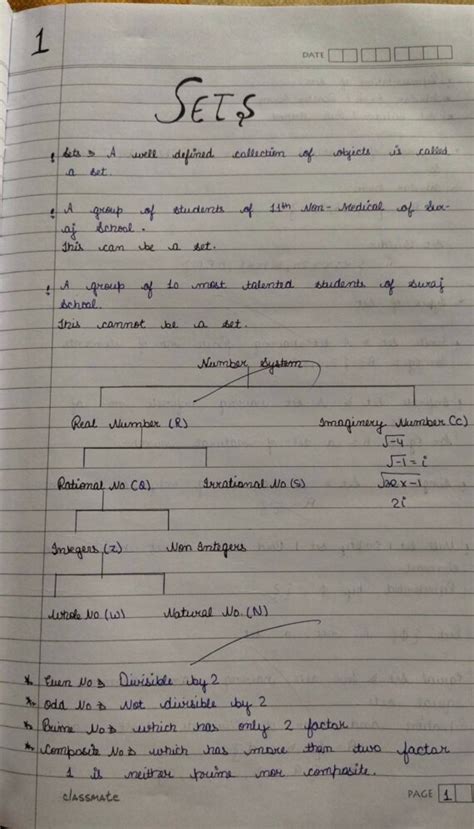 1
DATE
SETS
Sets → A well defined collection of objects is called
a set.
A group of students of 11th Non-Medical of Sur-
aj School.
This can be a set.
A group of 10 most talented students of Suraj
School.
This cannot be a set.
Number System
Real Number (R) Imaginery Number (C)
√-4
√-1 = i
Rational No (Q) Irrational No (S)
2i
Integers (Z) Non Integers
Whole No (W) Natural No. (N)
* Even No → Divisible by 2
* Odd No → Not divisible by 2
* Prime No → which has only 2 factor
* Composite No → which has more than two factor
1 is neither prime nor composite.
classmate PAGE 1